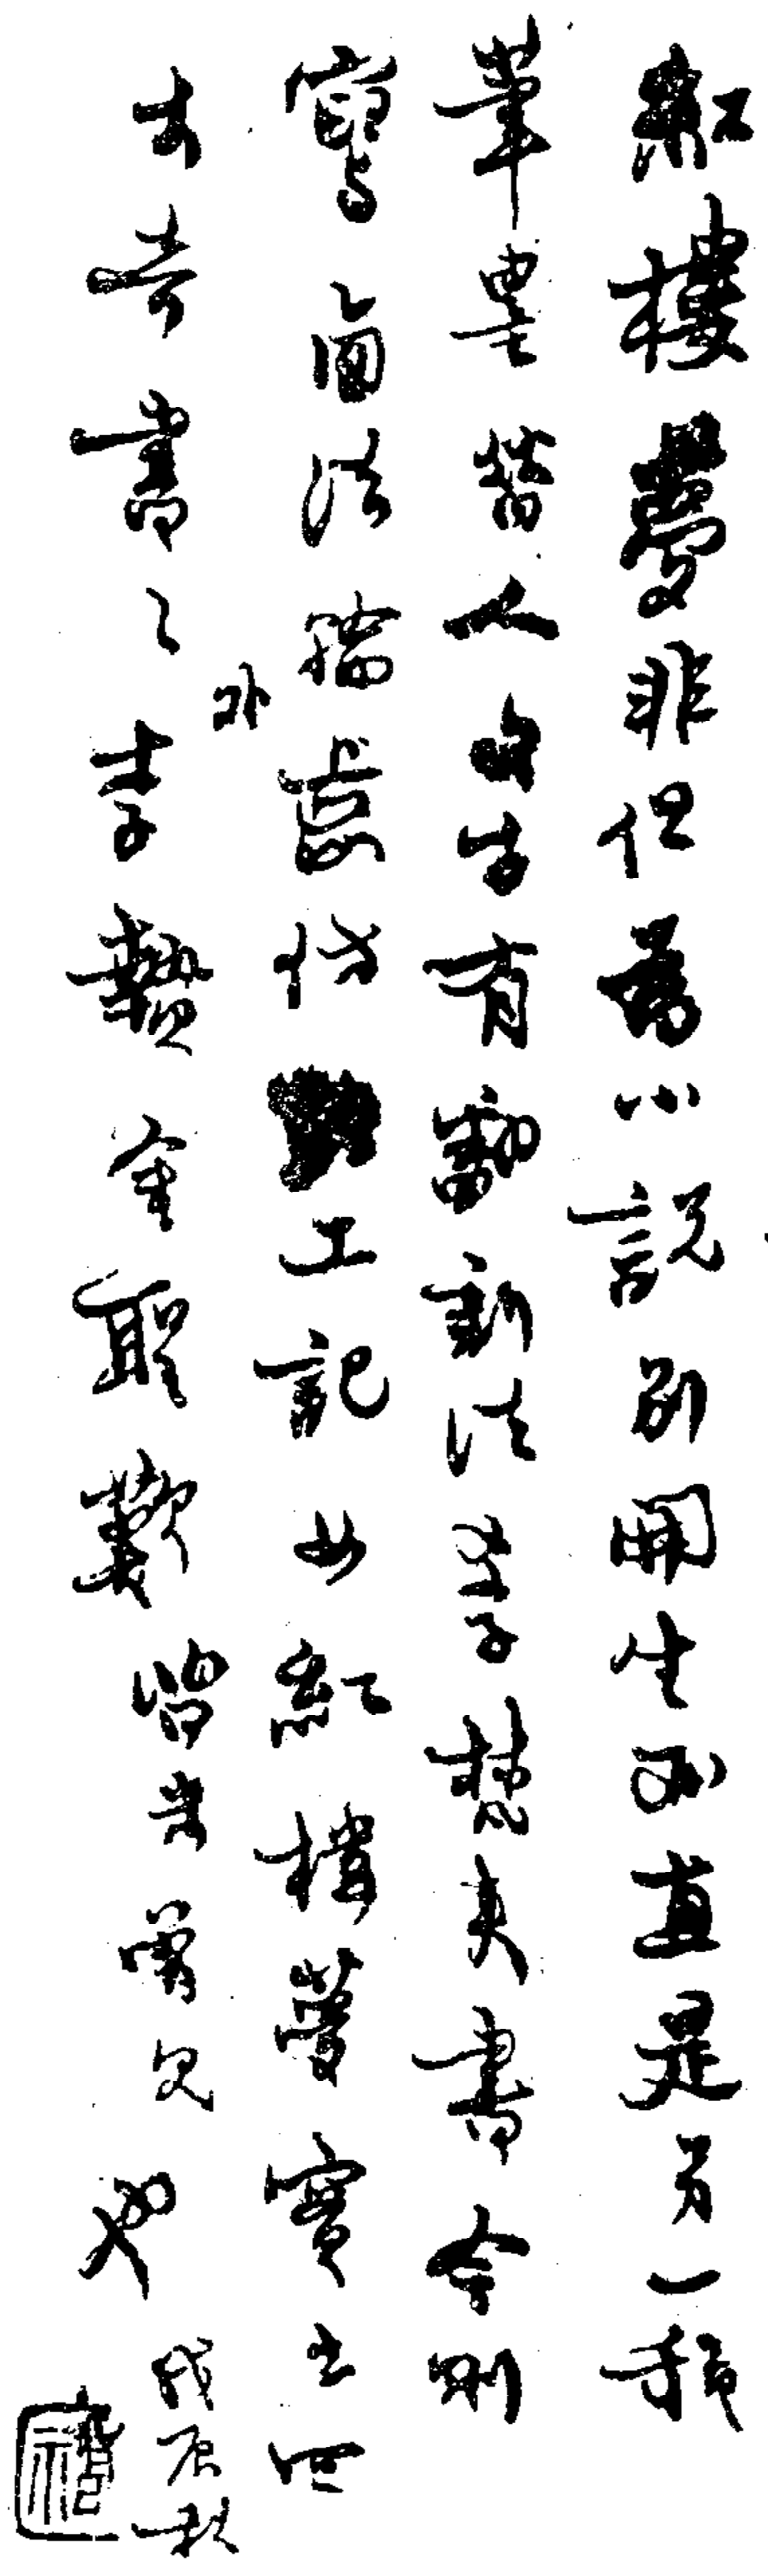 紅樓夢非但為小說別開生面直是另一種
筆墨昔人文字有翻新法學梵夾書今則
寫西法輪齒仿考工記如紅樓夢實出四
大奇書之外李贄金聖歎皆未曾見也戊辰秋